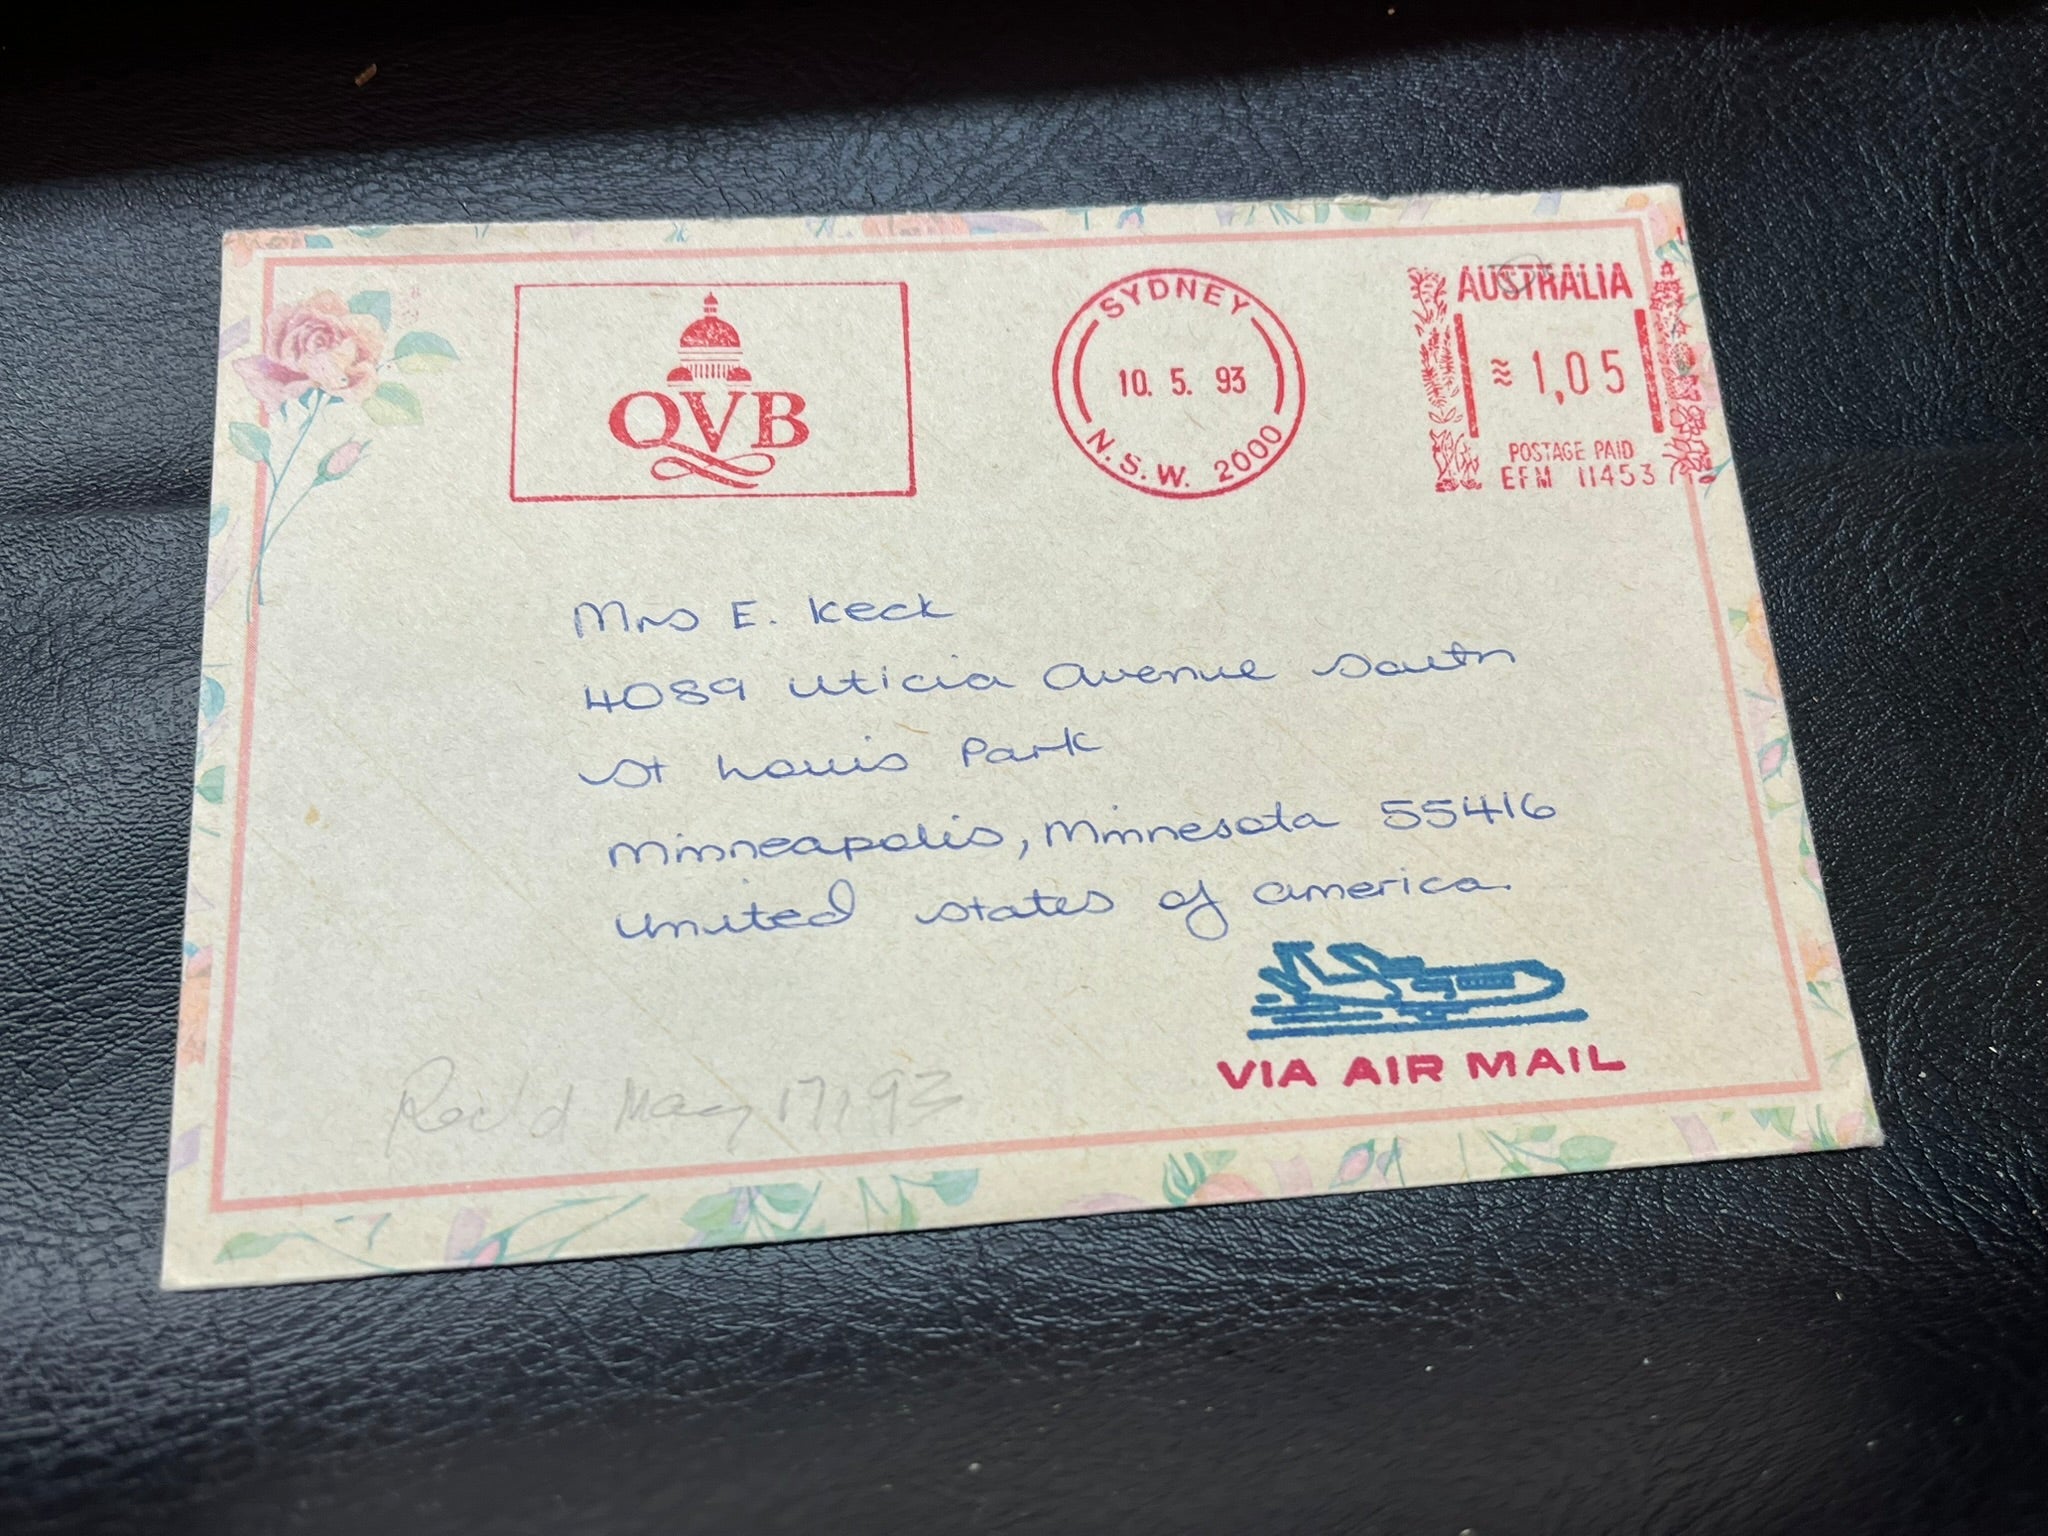 QVB
SYDNEY
10. 5. 93
N.S.W. 2000
AUSTRALIA
≈ 1,05
POSTAGE PAID
EFM 11453
Mrs E. Keck
4089 Uticia Avenue South
St Louis Park
Minneapolis, Minnesota 55416
United States of America.
VIA AIR MAIL
Rec'd May 17, 93